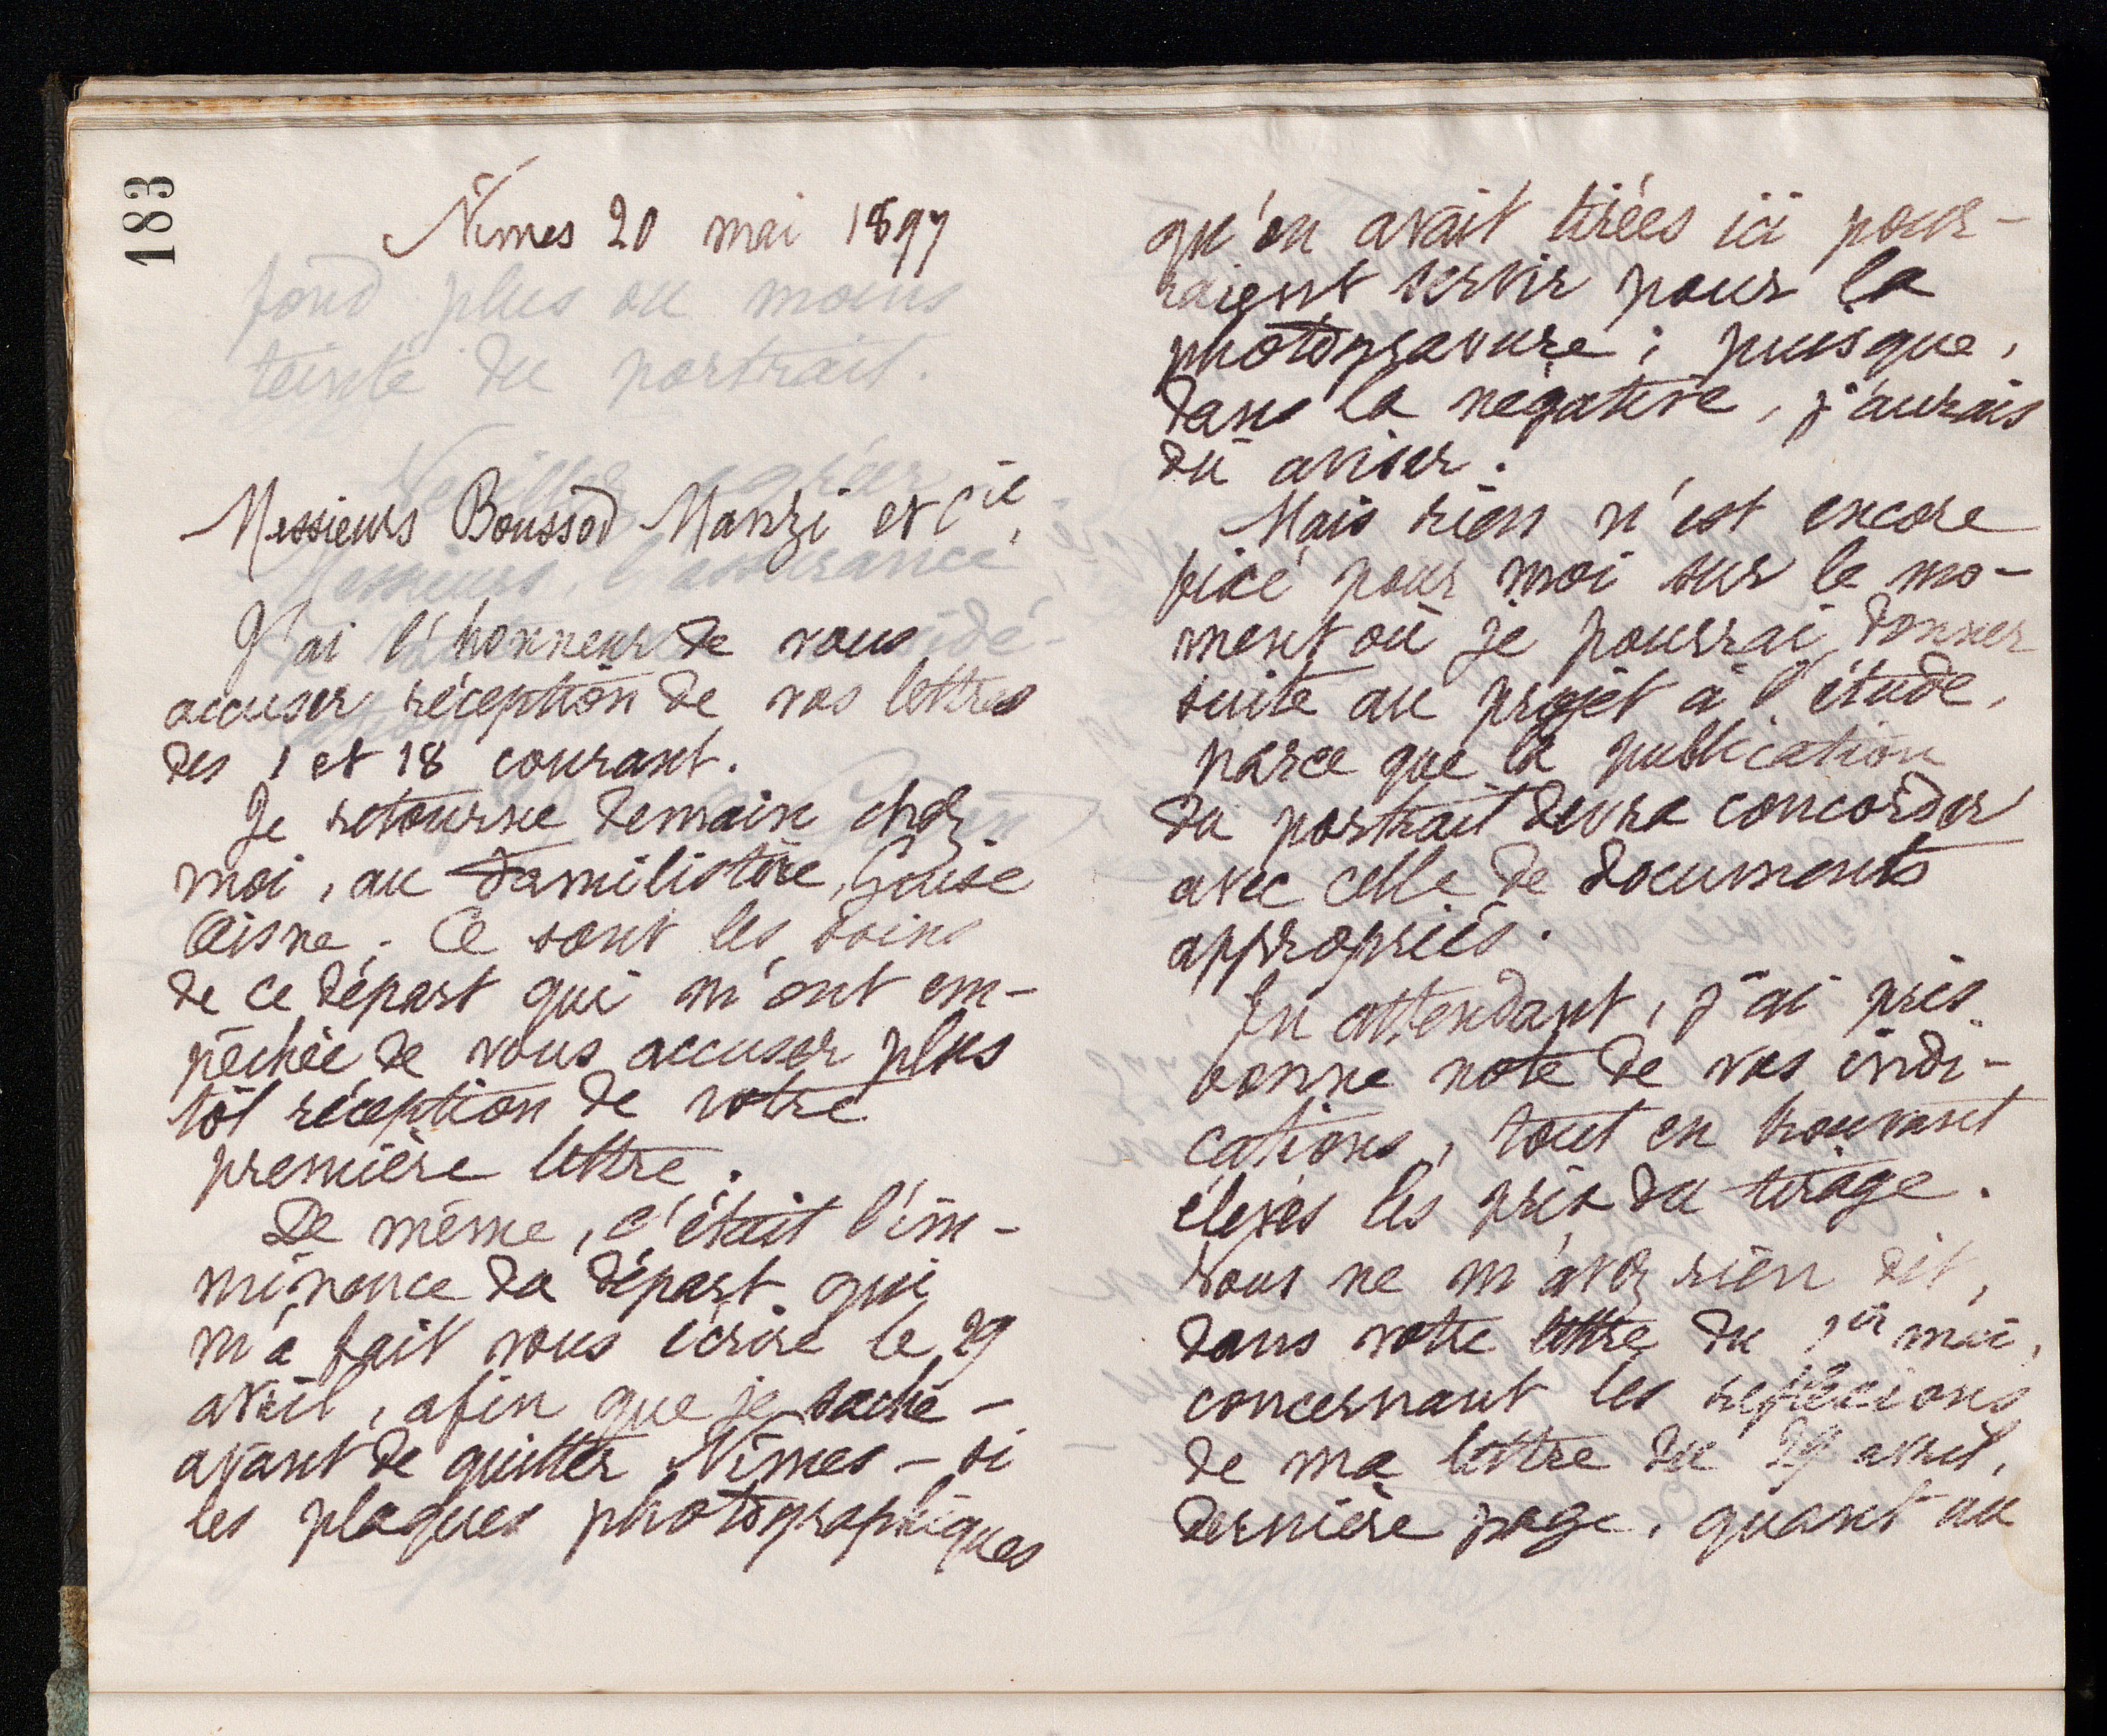 183
Nîmes 20 mai 1897
fond plus ou moins
teinté du portrait.
Veuillez agréer
Messieurs Boussod Manzi et Cie,
Messieurs, l'assurance
J'ai l'honneur de vous
accuser réception de vos lettres
des 1 et 18 courant.
Je retourne demain chez
moi, au Familistère, Guise
Aisne. Ce sont les soins
de ce départ qui m'ont em-
pêchée de vous accuser plus
tôt réception de votre
première lettre.
De même, c'était l'im-
minence du départ qui
m'a fait vous écrire le 29
avril, afin que je sache -
avant de quitter Nîmes - si
les plaques photographiques
qu'on avait tirées ici pour-
raient servir pour la
photogravure; puisque,
dans la négative, j'aurais
dû aviser.
Mais rien n'est encore
fixé pour moi sur le mo-
ment où je pourrai donner
suite au projet à l'étude,
parce que la publication
du portrait devra concorder
avec celle de documents
appropriés.
En attendant, j'ai pris
bonne note de vos indi-
cations, tout en trouvant
élevés les prix du tirage.
Vous ne m'avez rien dit,
dans votre lettre du 1er mai,
concernant les réflexions
de ma lettre du 29 avril,
dernière page, quant au